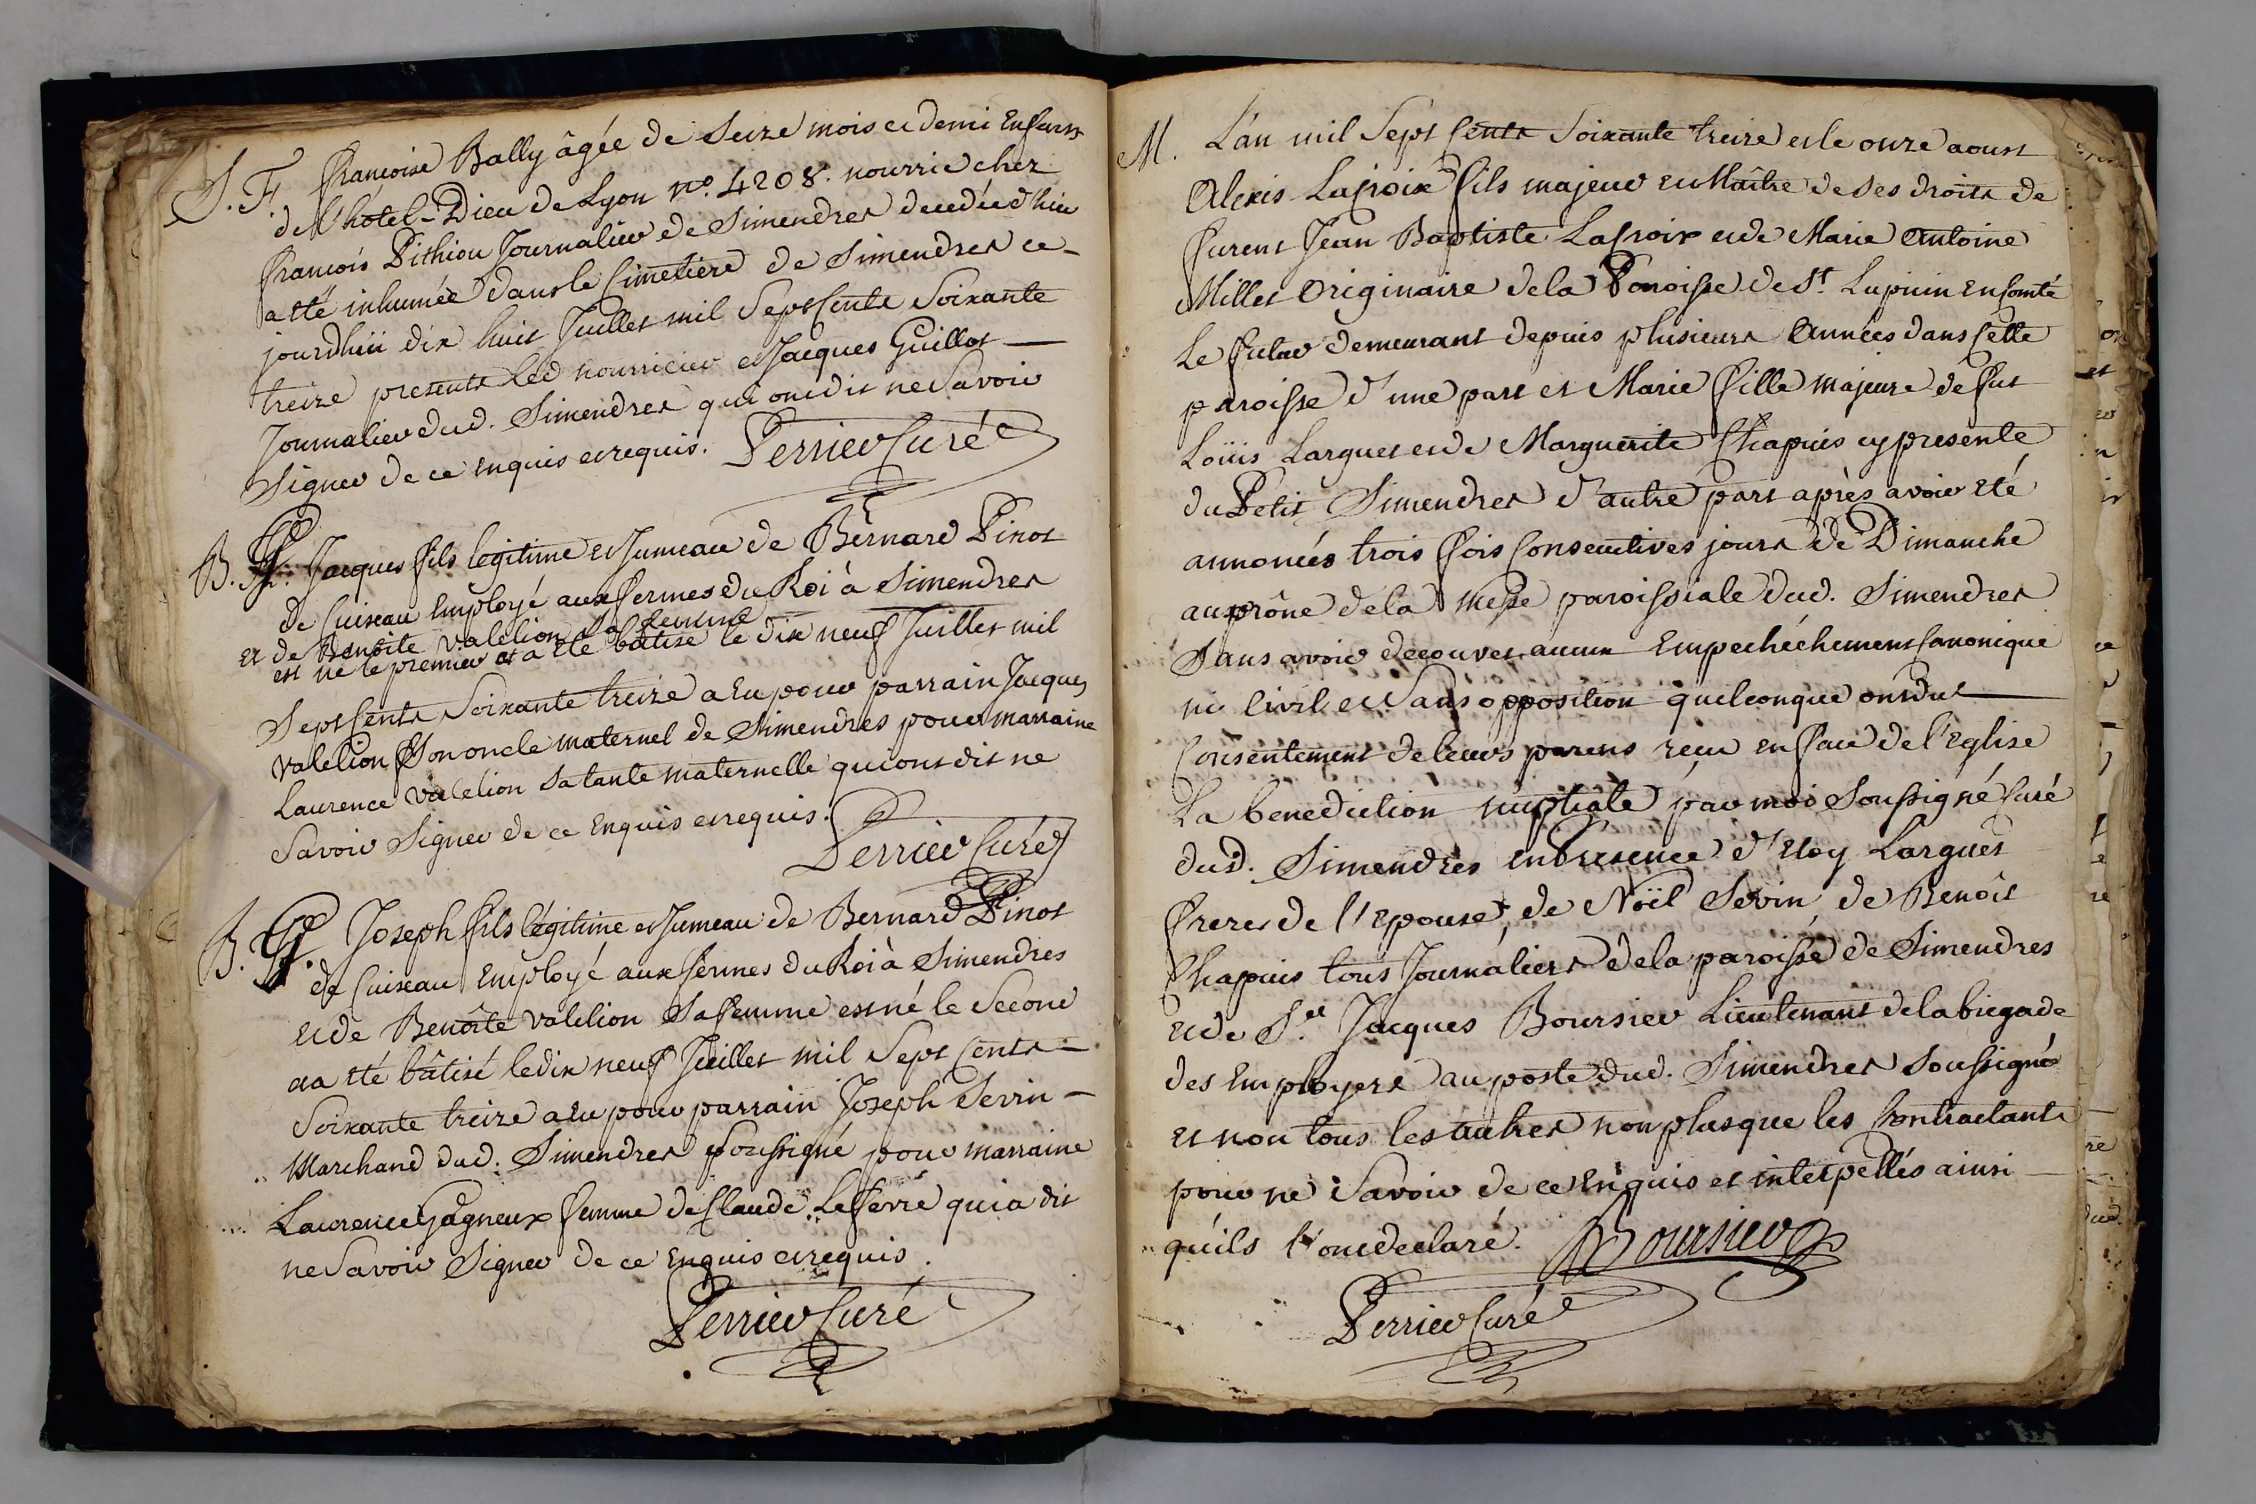 S. F. françoise Bally âgée de Seize mois et demi Enfant
de l'hôtel-Dieu de Lyon n°. 4208. nourrie chez
françois Pithiou Journalier de Simendres decedée d'hier
a été inhumée dans le Cimetiere de Simendres ce-
jourdhui dix huit Juillet mil Sept Cents Soixante
treize presents led nourricier et Jacques Guillot
Journalier dud. Simendres qui ont dit ne Savoir
Signer de ce enquis et requis. Perrier Curé
B. Jacques fils legitime et Jumeau de Bernard Pinot
de Cuiseau Employé aux fermes du Roi à Simendres
et de Benoîte valelion Sa femme
est né le premier et a été bâtisé le dix neuf Juillet mil
Sept Cents Soixante treize a eu pour parrain Jacques
valelion Son oncle maternel de Simendres pour marraine
Laurence valelion Sa tante maternelle qui ont dit ne
Savoir Signer de ce Enquis et requis.
Perrier Curé
B. Joseph fils légitime et Jumeau de Bernard Pinot
de Cuiseau Employé aux fermes du Roi à Simendres
et de Benoîte valelion Sa femme est né le Second
et a été bâtisé le dix neuf Juillet mil Sept Cents
Soixante treize a eu pour parrain Joseph Servin
Marchand dud. Simendres Soussigné pour marraine
Laurence Gagneux femme de Claude Lefevre qui a dit
ne Savoir Signer de ce Enquis et requis.
Perrier Curé
M. L'an mil Sept Cents Soixante treize et le onze aoust
Alexis Lacroix fils majeur et Maître de Ses droits de
furent Jean Baptiste Lacroix et de Marie Antoine
Millet Originaire de la Paroisse de St. Lupicin en Comté
Le futur demeurant depuis plusieurs Années dans Cette
paroisse d'une part et Marie fille majeure de fut
Loüis Larguet et de Marguerite Chapuis cy presente
du Petit Simendres d'autre part après avoir été
annoncés trois fois Consecutives jours de Dimanche
au prône de la Messe paroissiale dud. Simendres
Sans avoir decouvert aucun Empechéchement Canonique
ni Civil et Sans opposition quelconque ont du
Consentement de leurs parens reçu en face de l'Eglise
La benediction nuptiale par moi Soussigné Curé
dud. Simendres en Presence d'Eloy Larguet
frere de l'Epouse, de Noël Sevin, de Benoît
Chapuis tous Journaliers de la paroisse de Simendres
et de Sr. Jacques Boursier Lieutenant de la brigade
des Employers au poste dud. Simendres Soussigné
et non tous les autres non plus que les Contractants
pour ne Savoir de ce Enquis et interpellés ainsi
qu'ils l'ont declaré. Boursier
Perrier Curé